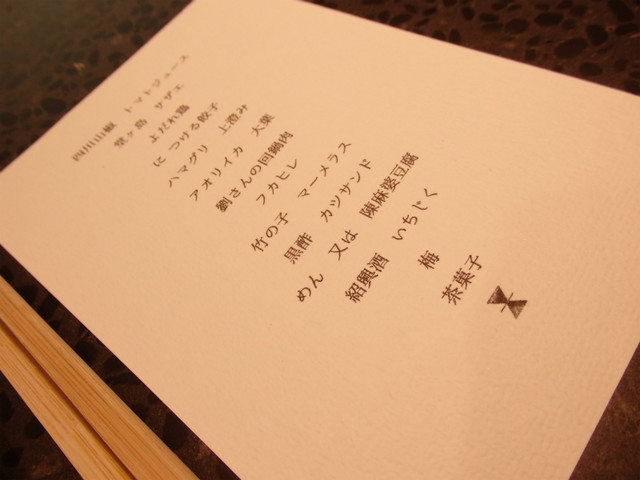 四川山椒 トマトジュース
堂ヶ島 サザエ
よだれ鶏
につける餃子
ハマグリ 上澄み
アオリイカ 大葉
劉さんの回鍋肉
フカヒレ
竹の子 マーメラス
黒酢 カツサンド
めん 又は 陳麻婆豆腐
紹興酒 いちじく
梅
茶菓子